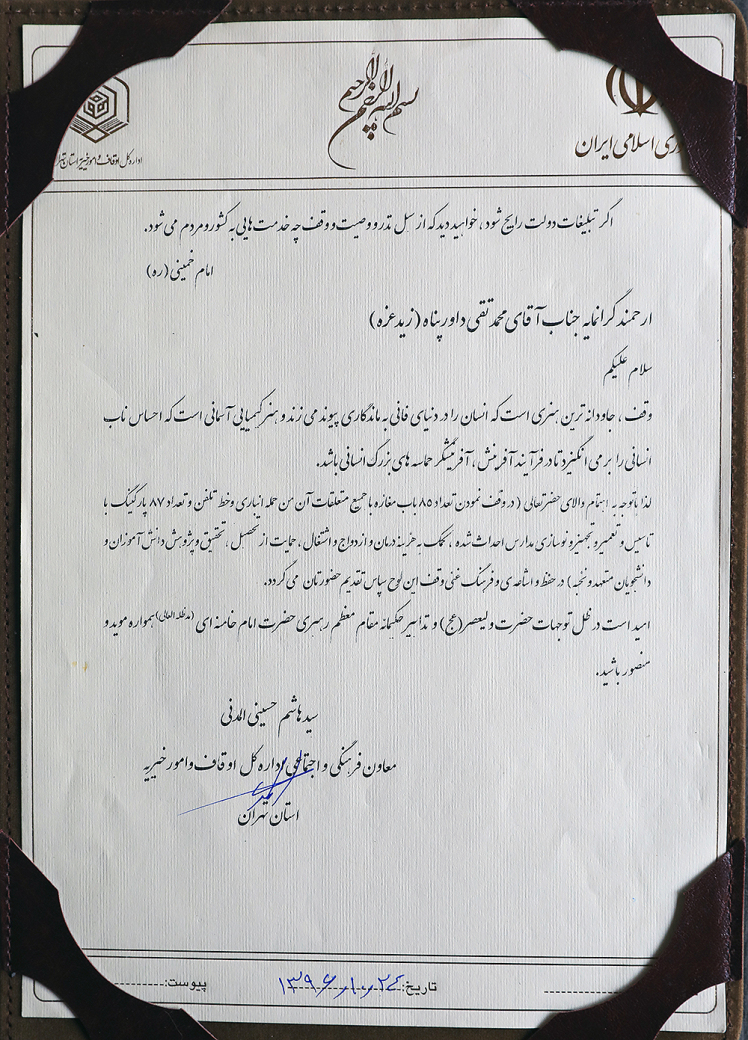 بسم الله الرحمن الرحیم
ری اسلامی ایران
اداره کل اوقاف و امور خیریه استان تهر
اگر تبلیغات دولت رایج شود، خواهید دید که از سبل نذر و وصیت و وقف چه خدمت هایی به کشور و مردم می شود.
امام خمینی (ره)
ارجمند گرانمایه جناب آقای محمد تقی داورپناه (زید عزه)
سلام علیکم
وقف، جاودانه ترین هنری است که انسان را در دنیای فانی به ماندگاری پیوند می زند و هنر کیمیایی آسمانی است که احساس ناب
انسانی را بر می انگیزد تا در فرآیند آفرینش، آفرینشگر حماسه های بزرگ انسانی باشد.
لذا باتوجه به اهتمام والای حضرتعالی ( در وقف نمودن تعداد ۸۵ باب مغازه با جمیع متعلقات آن من جمله انباری و خط تلفن و تعداد ۸۷ پارکینگ با
تاسیس و تعمیر و تجهیز و نوسازی مدارس احداث شده ، کمک به هزینه درمان و ازدواج و اشتغال ، حمایت از تحصیل ، تحقیق و پژوهش دانش آموزان و
دانشجویان متعهد و نخبه ) در حفظ و اشاعه ی و فرهنگ غنی وقف این لوح سپاس تقدیم حضورتان می گردد.
امید است در ظل توجهات حضرت ولیعصر(عج) و تدابیر حکیمانه مقام معظم رهبری حضرت امام خامنه ای (مدظله العالی) همواره موید و
منصور باشید.
سید هاشم حسینی المدنی
معاون فرهنگی و اجتماعی اداره کل اوقاف و امور خیریه
استان تهران
تاریخ: ۱۳۹۶/۱۰/۲۴
پیوست: